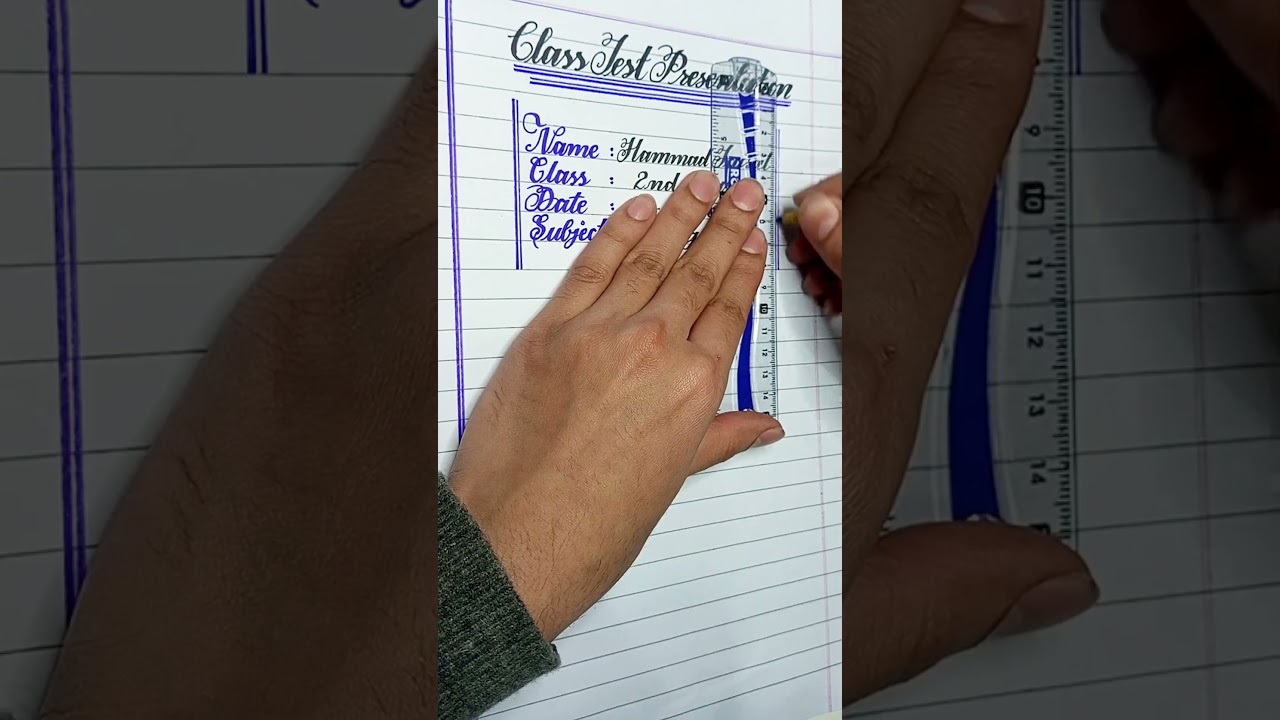 Class Test Presentation
Name : Hammad
Class : 2nd
Date :
Subject